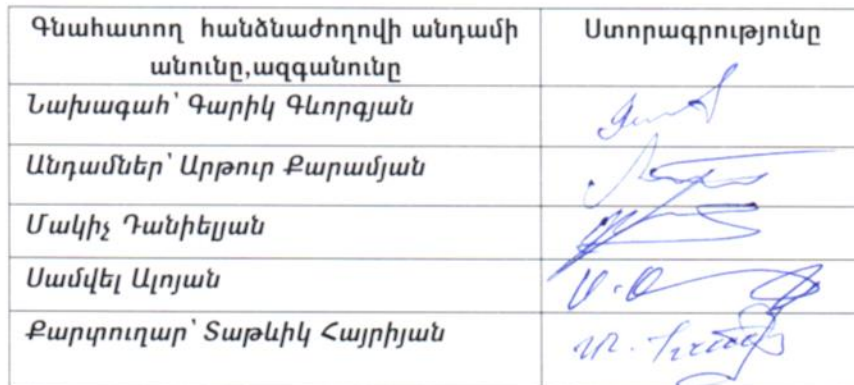 Գնահատող հանձնաժողովի անդամի Ստորագրությունը
անունը,ազգանունը
Նախագահ՝ Գարիկ Գևորգյան
Անդամներ՝ Արթուր Քարամյան
Մակիչ Դանիելյան
Սամվել Ալոյան
Քարտուղար՝ Տաթևիկ Հայրիյան